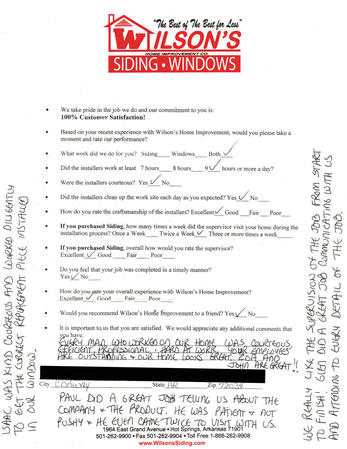 "The Best of The Best for Less"
WILSON'S
HOME IMPROVEMENT CO.
SIDING • WINDOWS
• We take pride in the job we do and our commitment to you is:
100% Customer Satisfaction!
• Based on your recent experience with Wilson's Home Improvement, would you please take a
moment and rate our performance?
• What work did we do for you? Siding____ Windows____ Both ✓
• Did the installers work at least 7 hours____ 8 hours____ 9 ✓ hours or more a day?
• Were the installers courteous? Yes ✓ No____
• Did the installers clean up the work site each day as you expected? Yes ✓ No____
• How do you rate the craftsmanship of the installers? Excellent ✓ Good ___ Fair ___ Poor___
• If you purchased Siding, how many times a week did the supervisor visit your home during the
installation process? Once a Week____ Twice a Week ✓ Three or more times a week____
• If you purchased Siding, overall how would you rate the supervisor?
Excellent ✓ Good ____ Fair ____ Poor____
• Do you feel that your job was completed in a timely manner?
Yes ✓ No____
• How do you rate your overall experience with Wilson's Home Improvement?
Excellent ✓ Good____ Fair____ Poor____
• Would you recommend Wilson's Home Improvement to a friend? Yes ✓ No____
• It is important to us that you are satisfied. We would appreciate any additional comments that
you have.
EVERY MAN WHO WORKED ON OUR HOME WAS COURTEOUS,
EFFICIENT, PROFESSIONAL + HARD AT WORK. YOUR EMPLOYEES
ARE OUTSTANDING & OUR HOME LOOKS GREAT. BOB AND
JOHN ARE GREAT!!
City CONWAY State AR Zip 72034
PAUL DID A GREAT JOB TELLING US ABOUT THE
COMPANY & THE PRODUCT. HE WAS PATIENT & NOT
PUSHY & HE EVEN CAME TWICE TO VISIT WITH US.
1964 East Grand Avenue • Hot Springs, Arkansas 71901
501-262-9900 • Fax 501-262-9904 • Toll Free 1-866-262-9908
www.WilsonsSiding.com
ISAAC WAS KIND COURTEOUS AND WORKED DILIGENTLY
TO GET THE CORRECT REPLACEMENT PIECE INSTALLED
IN OUR WINDOW.
WE REALLY LIKE THE SUPERVISION OF THE JOB FROM START
TO FINISH! GLEN DID A GREAT JOB COMMUNICATING WITH US
AND ATTENDING TO EVERY DETAIL OF THE JOB.